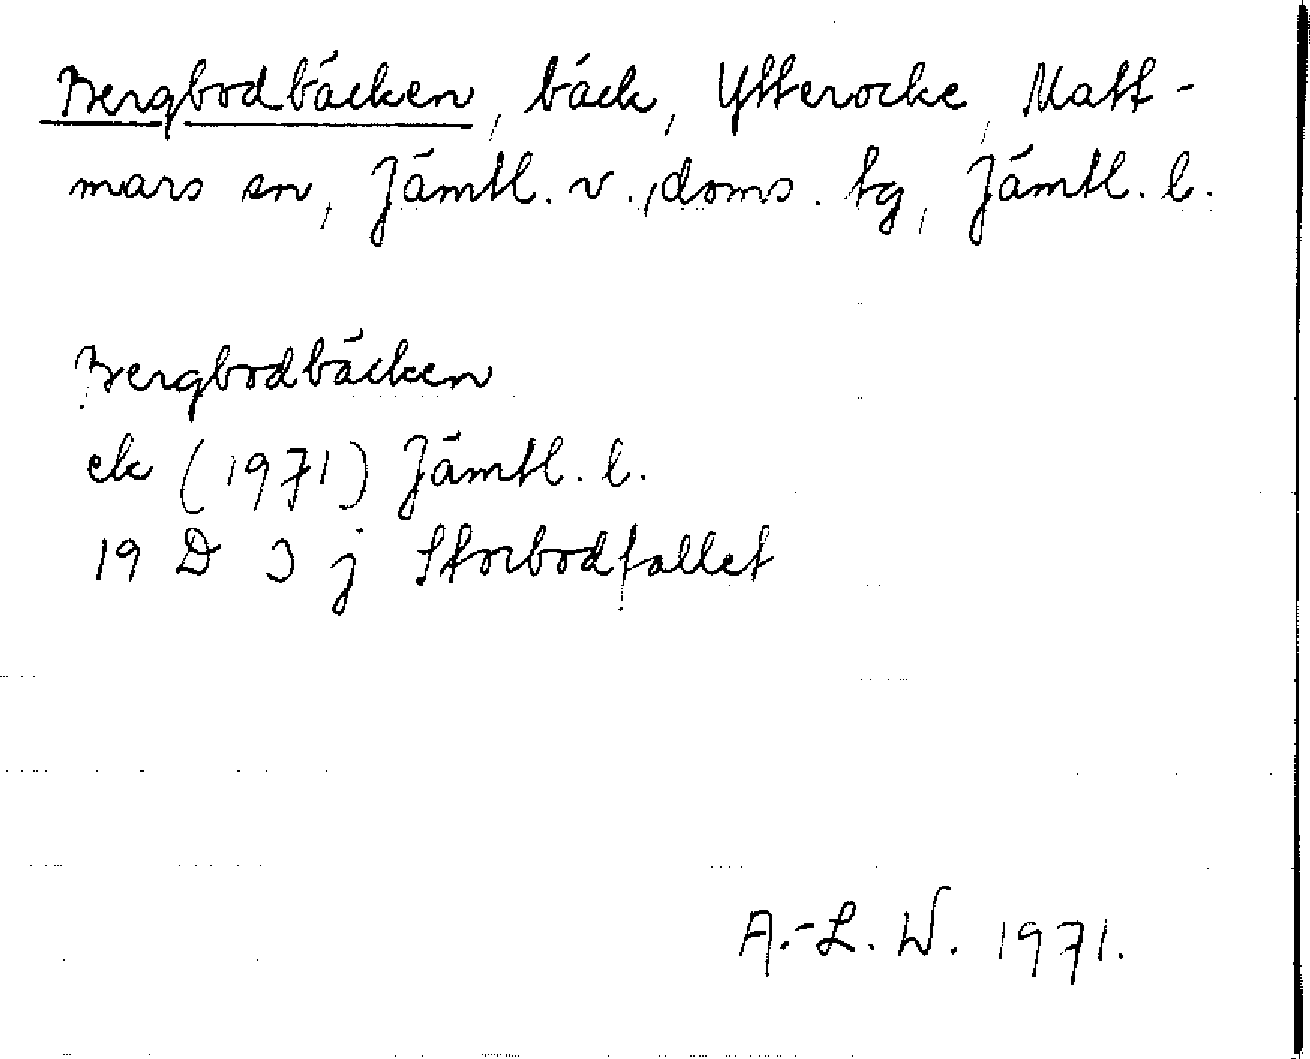 Bergbodbäcken, bäck, Ytterocke, Matt-
mars sn, Jämtl. v., doms. tg, Jämtl. l.
Bergbodbäcken
ek (1971) Jämtl. l.
19 D 3 j Storbodfallet
A.-L. W. 1971.